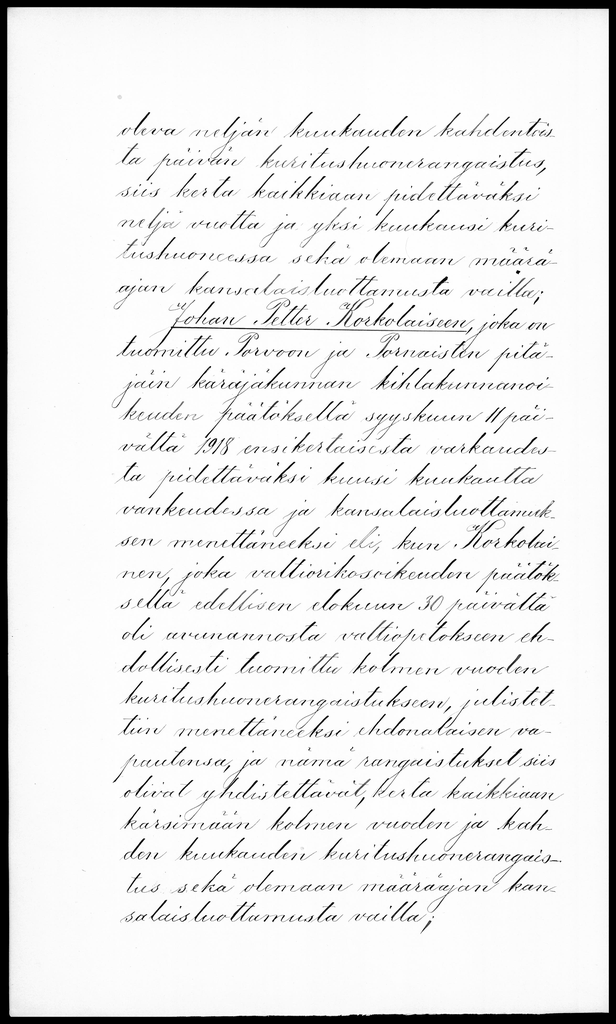 oleva neljän kuukauden kahdentois
ta päivän kuritushuonerangaistus,
siis kerta kaikkiaan pidettäväksi
neljä vuotta ja yksi kuukausi kuri-
tushuoneessa sekä olemaan määrä-
ajan kansalaisluottamusta vailla;
Johan Petter Korkolaiseen, joka on
tuomittu Porvoon ja Pornaisten pitä-
jäin käräjäkunnan kihlakunnanoi-
keuden päätöksellä syyskuun 11 päi-
vältä 1918 ensikertaisesta varkaudes-
ta pidettäväksi kuusi kuukautta
vankeudessa ja kansalaisluottamuk-
sen menettäneeksi eli, kun Korkolai-
nen, joka valtiorikosoikeuden päätök-
sellä edellisen elokuun 30 päivältä
oli avunannosta valtiopetokseen eh-
dollisesti tuomittu kolmen vuoden
kuritushuonerangaistukseen, julistet-
tiin menettäneeksi ehdonalaisen va-
pautensa, ja nämä rangaistukset siis
olivat yhdistettävät, kerta kaikkiaan
kärsimään kolmen vuoden ja kah-
den kuukauden kuritushuonerangais-
tus sekä olemaan määräajan kan-
salaisluottamusta vailla;